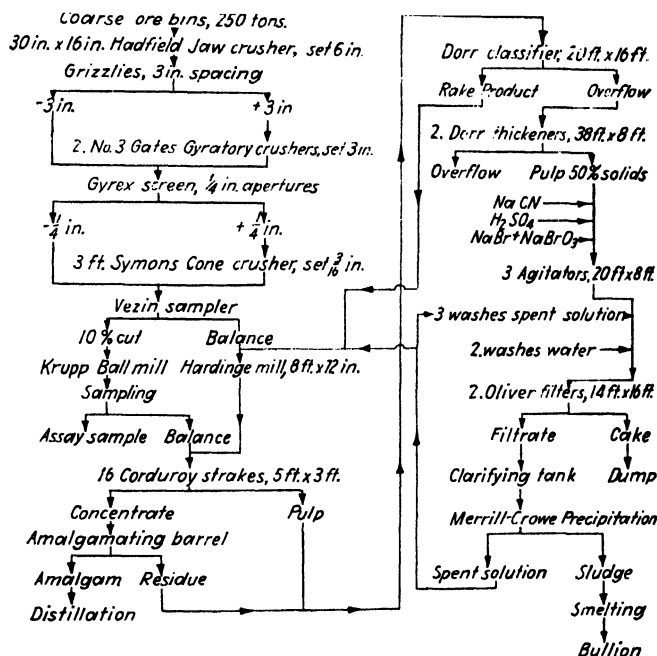 Coarse ore bins, 250 tons.
30 in. x 16 in. Hadfield Jaw crusher, set 6 in.
Grizzlies, 3 in. spacing
-3 in.
+3 in
2. No. 3 Gates Gyratory crushers, set 3 in.
Gyrex screen, 1/4 in. apertures
-1/4 in.
+1/4 in.
3 ft. Symons Cone crusher, set 3/16 in.
Vezin sampler
10% cut
Balance
Krupp Ball mill
Hardinge mill, 8 ft. x 12 in.
Sampling
Assay sample
Balance
16 Corduroy strakes, 5 ft. x 3 ft.
Concentrate
Pulp
Amalgamating barrel
Amalgam
Residue
Distillation
Dorr classifier, 20 ft. x 16 ft.
Rake Product
Overflow
2. Dorr thickeners, 38 ft. x 8 ft.
Overflow
Pulp 50% solids
NaCN
H2SO4
NaBr+NaBrO3
3 Agitators, 20 ft x 8 ft.
3 washes spent solution
2. washes water
2. Oliver filters, 14 ft. x 16 ft.
Filtrate
Cake
Clarifying tank
Dump
Merrill-Crowe Precipitation
Spent solution
Sludge
Smelting
Bullion